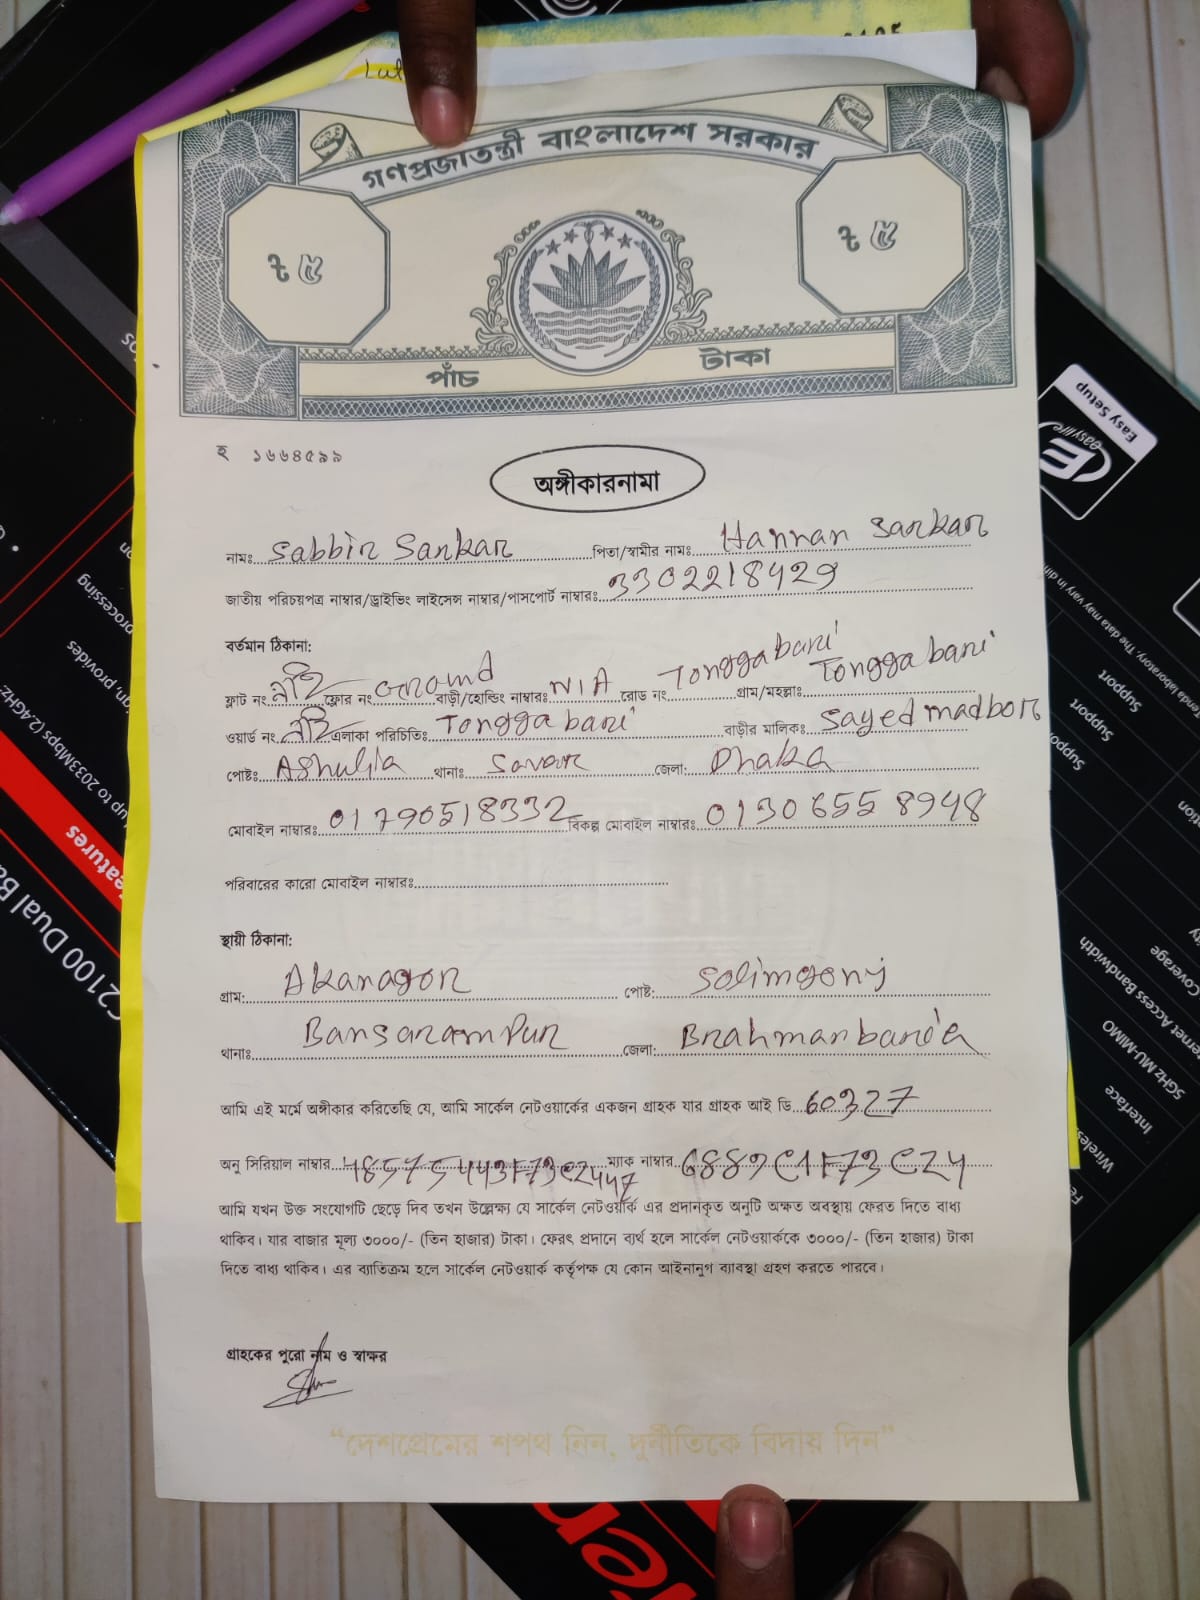 গণপ্রজাতন্ত্রী বাংলাদেশ সরকার
৳ ৫
৳ ৫
পাঁচ টাকা
হ ১৬৬৪৫৯৯
অঙ্গীকারনামা
নামঃ Sabbir Sarkar পিতা/স্বামীর নামঃ Hannan Sarkar
জাতীয় পরিচয়পত্র নাম্বার/ড্রাইভিং লাইসেন্স নাম্বার/পাসপোর্ট নাম্বারঃ 3302218429
বর্তমান ঠিকানা:
ফ্লাট নং নাই ফ্লোর নং Ground বাড়ী/হোল্ডিং নাম্বারঃ N/A রোড নং Tonggabari গ্রাম/মহল্লাঃ Tonggabari
ওয়ার্ড নং নাই এলাকা পরিচিতিঃ Tonggabari বাড়ীর মালিকঃ Sayed madbor
পোষ্টঃ Ashulia থানাঃ Savar জেলা: Dhaka
মোবাইল নাম্বারঃ 01790518332 বিকল্প মোবাইল নাম্বারঃ 01306558948
পরিবারের কারো মোবাইল নাম্বারঃ
স্থায়ী ঠিকানা:
গ্রাম: Akanagor পোষ্ট: Solimgonj
থানাঃ Bansarampur জেলা: Brahmanbaria
আমি এই মর্মে অঙ্গীকার করিতেছি যে, আমি সার্কেল নেটওয়ার্কের একজন গ্রাহক যার গ্রাহক আই ডি 60327
অনু সিরিয়াল নাম্বার 485754431F73C2447 ম্যাক নাম্বার 6889C1F73C24
আমি যখন উক্ত সংযোগটি ছেড়ে দিব তখন উল্লেক্ষ্য যে সার্কেল নেটওয়ার্ক এর প্রদানকৃত অনুটি অক্ষত অবস্থায় ফেরত দিতে বাধ্য
থাকিব। যার বাজার মূল্য ৩০০০/- (তিন হাজার) টাকা। ফেরৎ প্রদানে ব্যর্থ হলে সার্কেল নেটওয়ার্ককে ৩০০০/- (তিন হাজার) টাকা
দিতে বাধ্য থাকিব। এর ব্যাতিক্রম হলে সার্কেল নেটওয়ার্ক কর্তৃপক্ষ যে কোন আইনানুগ ব্যাবস্থা গ্রহণ করতে পারবে।
গ্রাহকের পুরো নাম ও স্বাক্ষর
“দেশপ্রেমের শপথ নিন, দুর্নীতিকে বিদায় দিন”
Easy Setup
easylife
Support
Support
Support
Coverage
Internet Access Bandwidth
5GHz MU-MIMO
Interface
processing
up to 2033Mbps (2.4GHz
C2100 Dual Ba